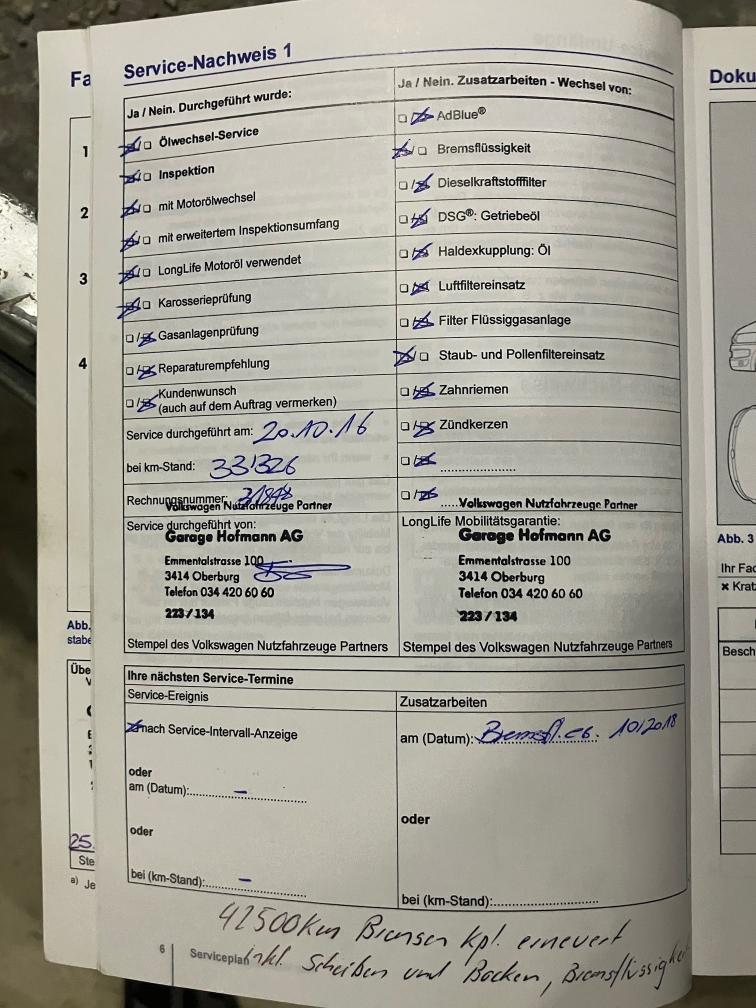 Service-Nachweis 1
Ja / Nein. Durchgeführt wurde:
Ölwechsel-Service
Inspektion
mit Motorölwechsel
mit erweitertem Inspektionsumfang
LongLife Motoröl verwendet
Karosserieprüfung
Gasanlagenprüfung
Reparaturempfehlung
Kundenwunsch
(auch auf dem Auftrag vermerken)
Service durchgeführt am: 20.10.16
bei km-Stand: 33'326
Rechnungsnummer:
Volkswagen Nutzfahrzeuge Partner
Service durchgeführt von:
Garage Hofmann AG
Emmentalstrasse 100
3414 Oberburg
Telefon 034 420 60 60
223 / 134
Stempel des Volkswagen Nutzfahrzeuge Partners
Ja / Nein. Zusatzarbeiten - Wechsel von:
AdBlue®
Bremsflüssigkeit
Dieselkraftstofffilter
DSG®: Getriebeöl
Haldexkupplung: Öl
Luftfiltereinsatz
Filter Flüssiggasanlage
Staub- und Pollenfiltereinsatz
Zahnriemen
Zündkerzen
Volkswagen Nutzfahrzeuge Partner
LongLife Mobilitätsgarantie:
Garage Hofmann AG
Emmentalstrasse 100
3414 Oberburg
Telefon 034 420 60 60
223 / 134
Stempel des Volkswagen Nutzfahrzeuge Partners
Ihre nächsten Service-Termine
Service-Ereignis
nach Service-Intervall-Anzeige
oder
am (Datum): –
oder
bei (km-Stand): –
Zusatzarbeiten
am (Datum): Bremsfl. 10/2018
oder
bei (km-Stand):
42500km Bremsen kpl. erneuert
inkl. Scheiben und Backen, Bremsflüssigkeit
6 Serviceplan
Fa
1
2
3
4
Abb.
stabe
Übe
V
25.
Ste
a) Je
Doku
Abb. 3
Ihr Fac
× Krat
Besch